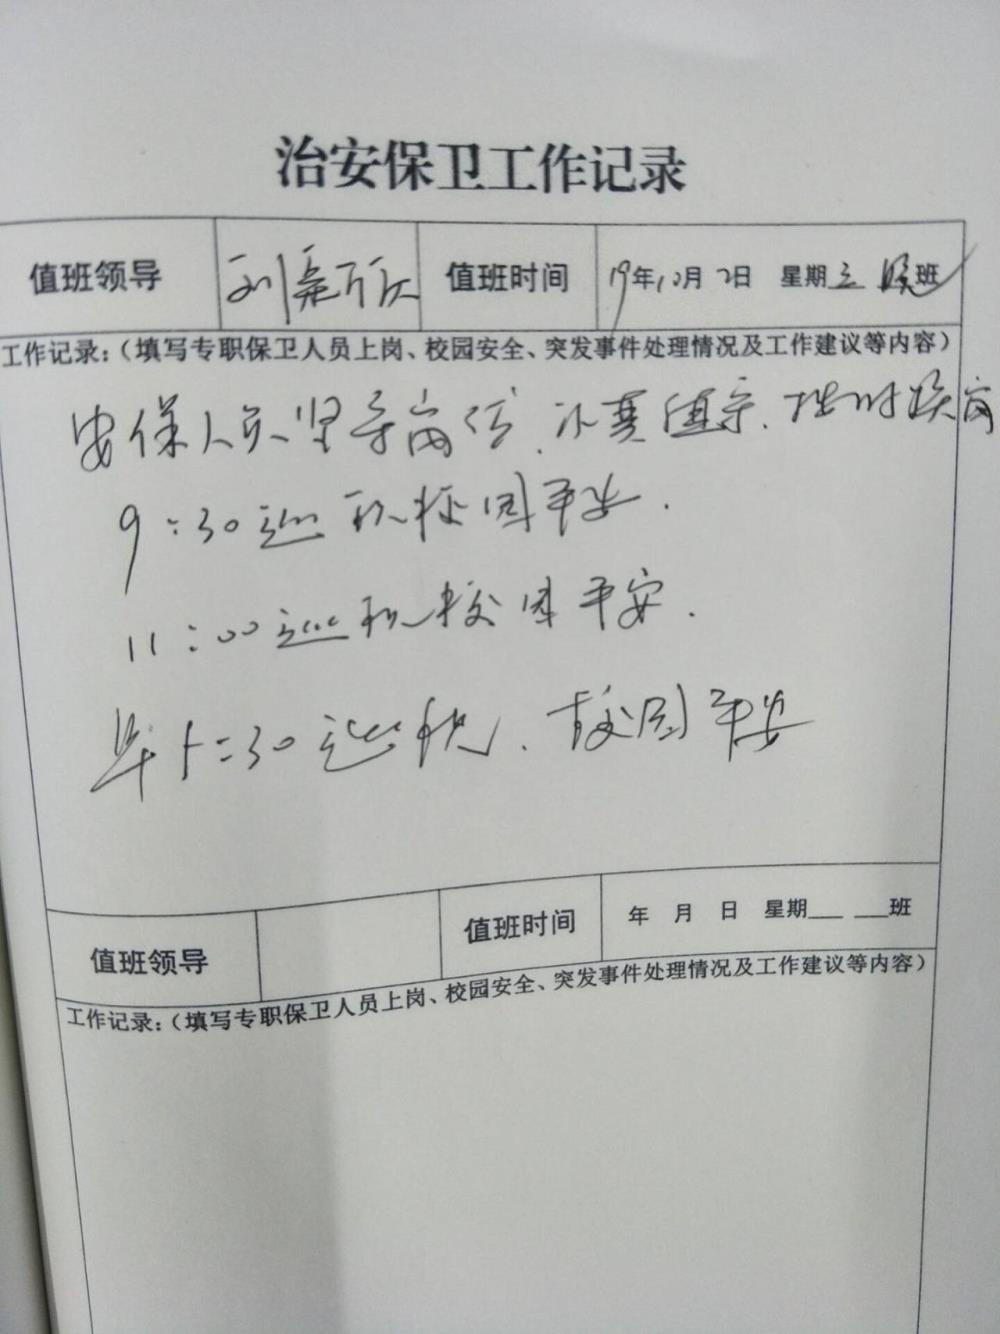 治安保卫工作记录
值班领导 刘 值班时间 19年10月2日 星期三 晚班
工作记录：（填写专职保卫人员上岗、校园安全、突发事件处理情况及工作建议等内容）
安保人员坚守岗位、认真值守、按时换岗
9:30巡视校园平安.
11:00巡视校园平安.
早5:30巡视、校园平安
值班领导 值班时间 年 月 日 星期___ ___班
工作记录：（填写专职保卫人员上岗、校园安全、突发事件处理情况及工作建议等内容）